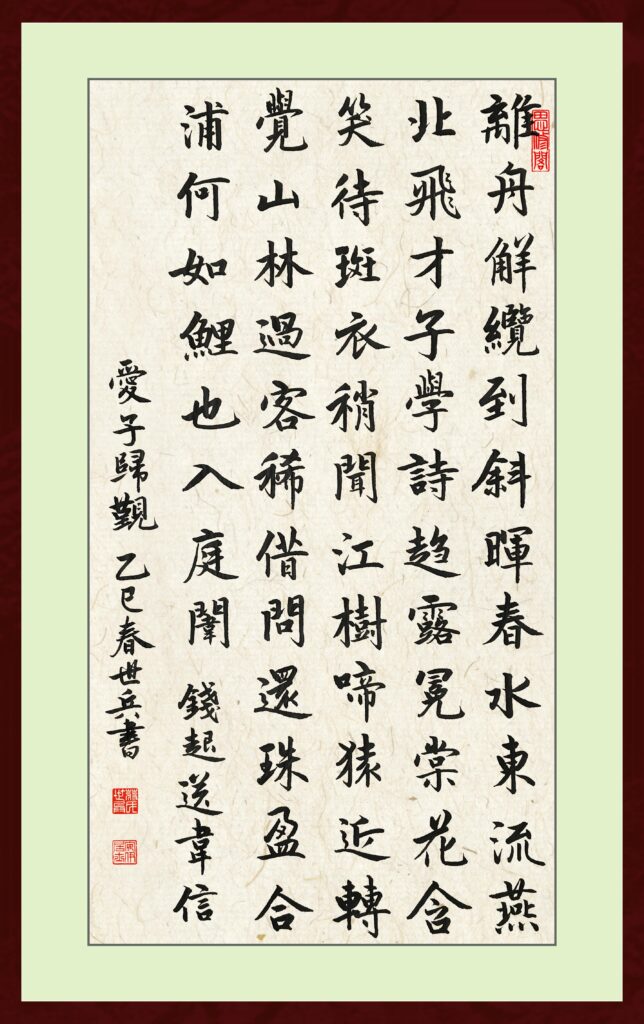 離舟解纜到斜暉春水東流燕
北飛才子學詩趨露冕棠花含
笑待斑衣稍聞江樹啼猿近轉
覺山林過客稀借問還珠盈合
浦何如鯉也入庭闈 錢起送韋信
愛子歸覲 乙巳春世兵書
思補閣